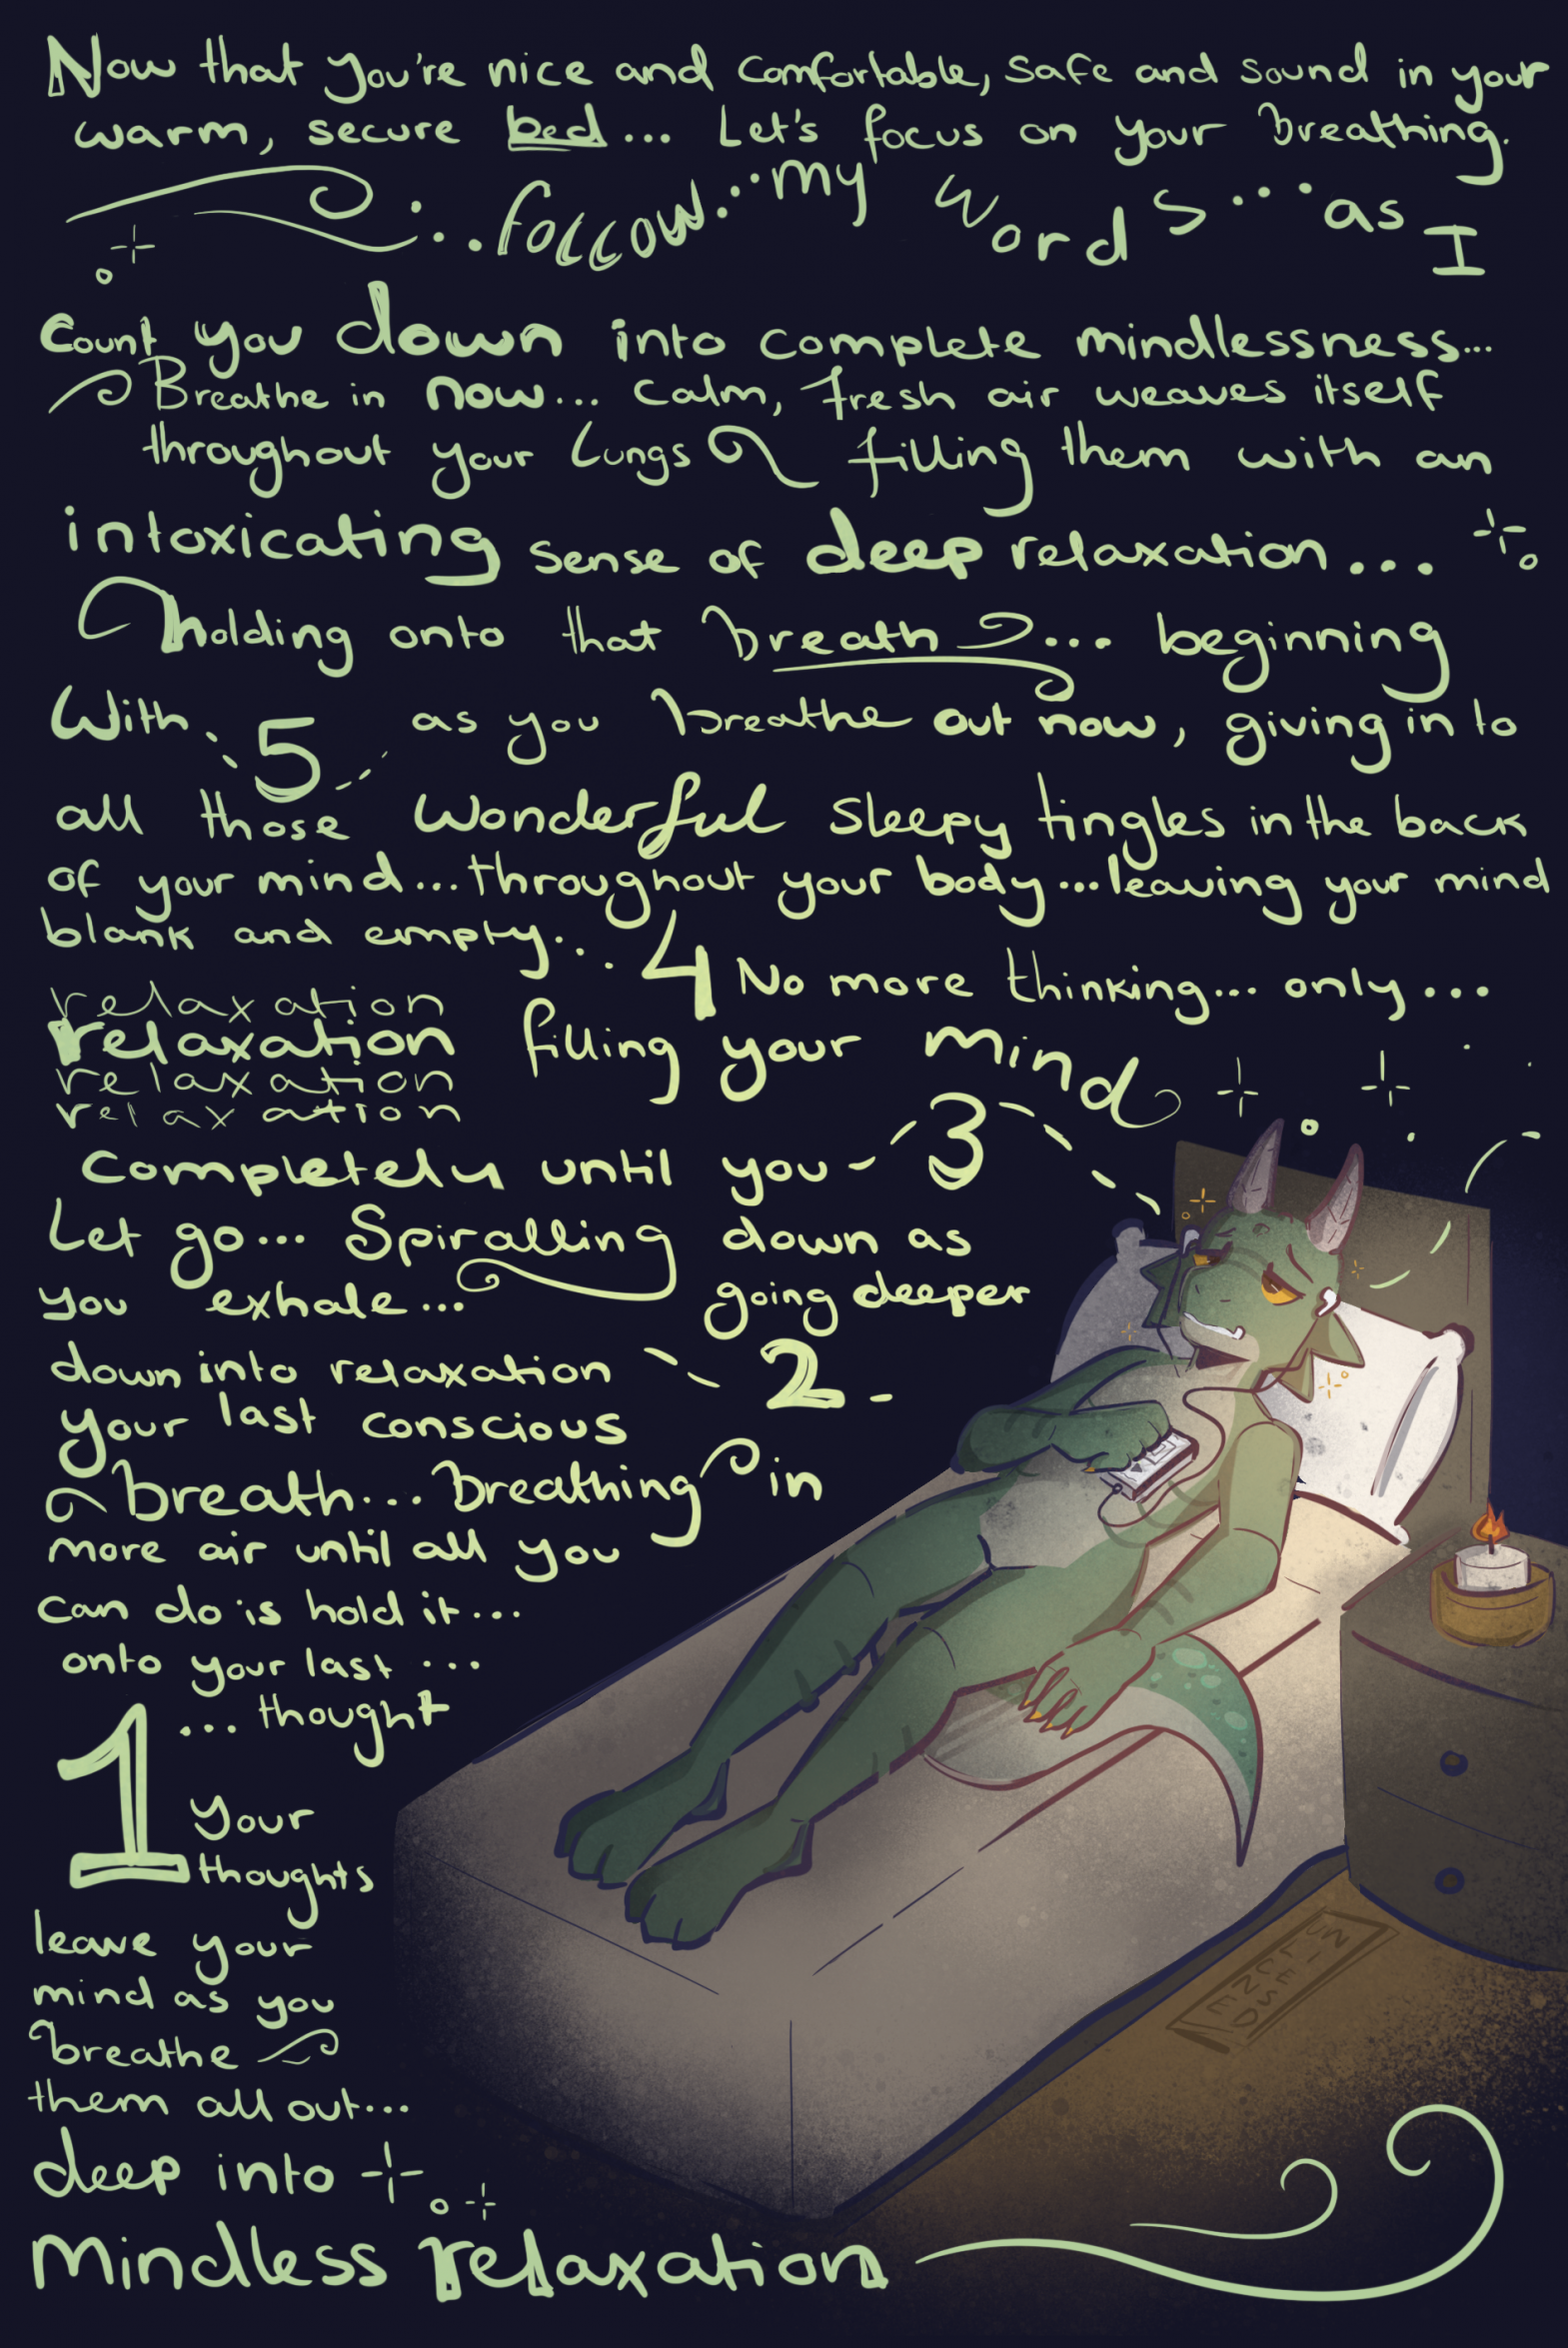 Now that you're nice and comfortable, safe and sound in your
warm, secure bed... Let's focus on your Breathing.
...follow...my words...as I
Count you down into complete mindlessness...
Breathe in now... Calm, fresh air weaves itself
throughout your Lungs filling them with an
intoxicating sense of deep relaxation...
holding onto that breath... beginning
With 5 as you breathe out now, giving in to
all those wonderful sleepy tingles in the back
of your mind...throughout your body...leaving your mind
blank and empty... 4 No more thinking... only...
relaxation
relaxation
relaxation
relaxation
filling your mind
Completely until you 3
Let go... Spiralling down as
you exhale... going deeper
down into relaxation 2
your last conscious
breath... Breathing in
more air until all you
can do is hold it...
onto your last ...
... thought
1 Your
thoughts
leave your
mind as you
breathe
them all out...
deep into
Mindless relaxation
UNLICENSED